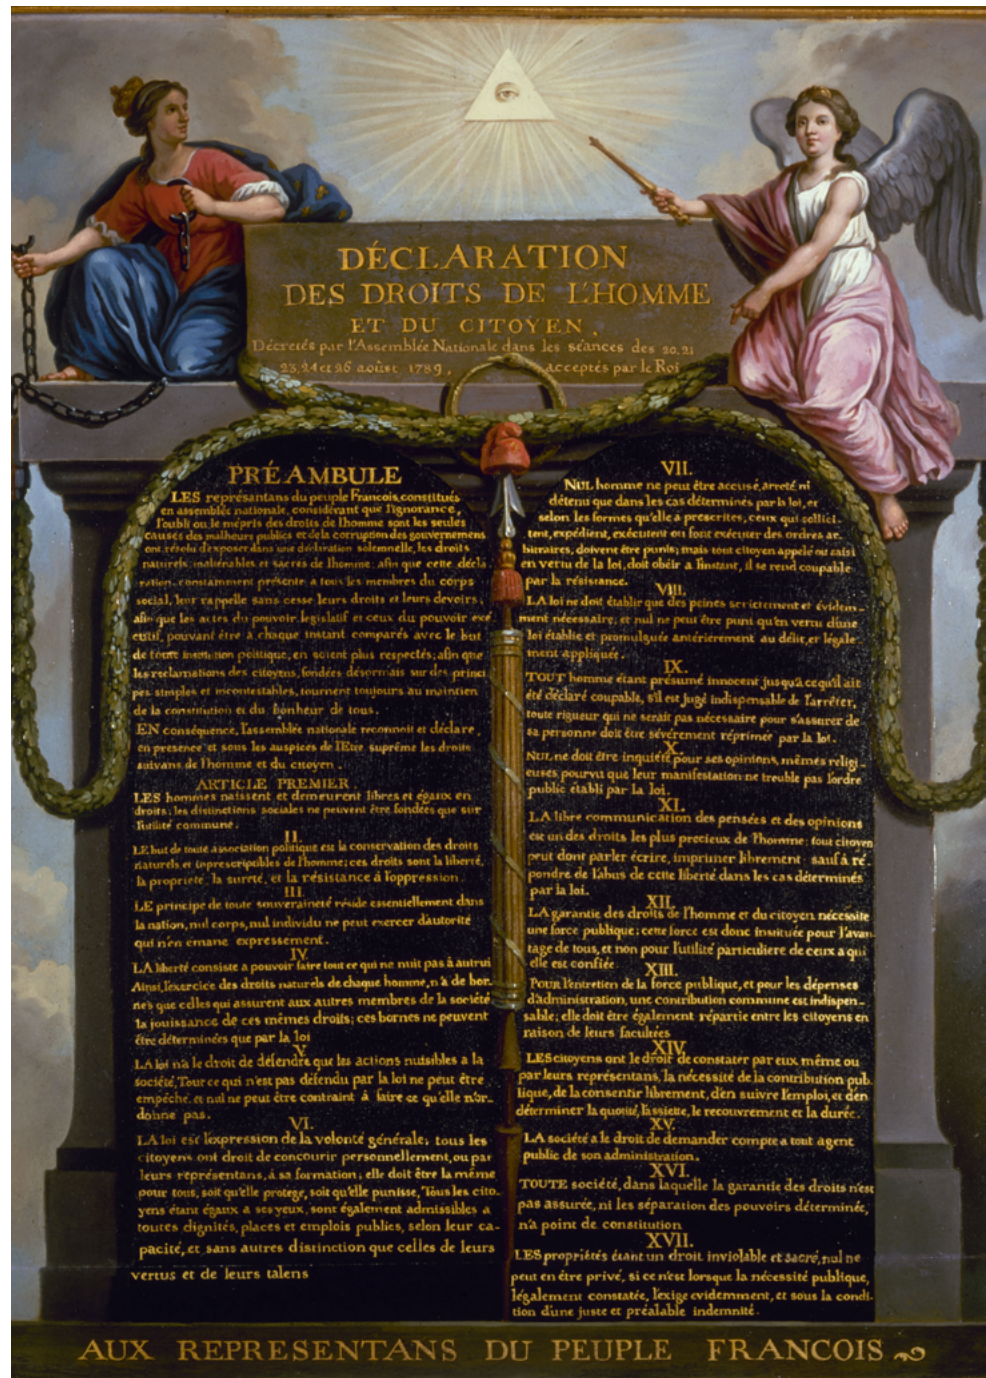 DÉCLARATION
DES DROITS DE L'HOMME
ET DU CITOYEN,
Décretés par l'Assemblée Nationale dans les séances des 20, 21
23, 24 et 26 août 1789, acceptés par le Roi
PRÉAMBULE
LES représantans du peuple Francois, constitués
en assemblée nationale, considérant que l'ignorance,
l'oubli ou le mépris des droits de l'homme sont les seules
causes des malheurs publics et de la corruption des gouvernemens
ont résolu d'exposer dans une déclaration solemnelle, les droits
naturels, inaliénables et sacrés de l'homme: afin que cette décla
ration, constamment présente a tous les membres du corps
social, leur rappelle sans cesse leurs droits et leurs devoirs,
afin que les actes du pouvoir legislatif et ceux du pouvoir exé
cutif, pouvant être a chaque instant comparés avec le but
de toute institution politique, en soient plus respectés; afin que
les reclamations des citoyens, fondées désormais sur des princi
pes simples et incontestables, tournent toujours au maintien
de la constitution et du bonheur de tous.
EN conséquence, l'assemblée nationale reconnoit et déclare,
en presence et sous les auspices de l'Etre suprême les droits
suivans de l'homme et du citoyen.
ARTICLE PREMIER.
LES hommes naissent et demeurent libres et égaux en
droits, les distinctions sociales ne peuvent être fondées que sur
l'utilité commune.
II.
LE but de toute association politique est la conservation des droits
naturels et inprescriptibles de l'homme; ces droits sont la liberté,
la propriété, la sureté, et la résistance à l'oppression.
III.
LE principe de toute souveraineté réside essentiellement dans
la nation, nul corps, nul individu ne peut exercer d'autorité
qui n'en émane expressement.
IV.
LA liberté consiste a pouvoir faire tout ce qui ne nuit pas à autrui
Ainsi, l'exercice des droits naturels de chaque homme, n'a de bor-
nes que celles qui assurent aux autres membres de la société
la jouissance de ces mêmes droits; ces bornes ne peuvent
être déterminées que par la loi
V.
LA loi n'a le droit de défendre que les actions nuisibles a la
société, Tout ce qui n'est pas défendu par la loi ne peut être
empêché, et nul ne peut être contraint à faire ce qu'elle n'or-
donne pas.
VI.
LA loi est l'expression de la volonté générale; tous les
citoyens ont droit de concourir personnellement, ou par
leurs représentans, à sa formation; elle doit être la même
pour tous, soit qu'elle protege, soit qu'elle punisse, Tous les cito-
yens étant égaux a ses yeux, sont également admissibles a
toutes dignités, places et emplois publics, selon leur ca-
pacité, et sans autres distinction que celles de leurs
vertus et de leurs talens
VII.
NUL homme ne peut être accusé, arreté ni
détenu que dans les cas déterminés par la loi, et
selon les formes qu'elle à prescrites, ceux qui sollici-
tent, expédient, exécutent ou font exécuter des ordres ar-
bitraires, doivent être punis; mais tout citoyen appelé ou saisi
en vertu de la loi, doit obéir a l'instant, il se rend coupable
par la résistance.
VIII.
LA loi ne doit établir que des peines strictement et évidem-
ment nécessaire, et nul ne peut être puni qu'en vertu d'une
loi établie et promulguée antérierement au délit, et légale-
ment appliquée.
IX.
TOUT homme étant présumé innocent jusqu'a ce qu'il ait
été déclaré coupable, s'il est jugé indispensable de l'arrêter,
toute rigueur qui ne serait pas nécessaire pour s'assurer de
sa personne doit être sévèrement réprimée par la loi.
X.
NUL ne doit être inquiété pour ses opinions, mêmes religi-
euses, pourvu que leur manifestation ne trouble pas l'ordre
public établi par la loi.
XI.
LA libre communication des pensées et des opinions
est un des droits les plus precieux de l'homme; tout citoyen
peut dont parler écrire, imprimer librement: sauf à ré
pondre de l'abus de cette liberté dans les cas déterminés
par la loi.
XII.
LA garantie des droits de l'homme et du citoyen nécessite
une force publique; cette force est donc instituée pour l'avan
tage de tous, et non pour l'utilité particuliere de ceux a qui
elle est confiée.
XIII.
POUR l'entretien de la force publique, et pour les dépenses
d'administration, une contribution commune est indispen-
sable; elle doit être également répartie entre les citoyens en
raison de leurs facultées
XIV.
LES citoyens ont le droit de constater par eux même ou
par leurs représentans, la nécessité de la contribution pub-
lique, de la consentir librement, d'en suivre l'emploi, et d'en
déterminer la quotité, l'assiette, le recouvrement et la durée.
XV.
LA société a le droit de demander compte a tout agent
public de son administration.
XVI.
TOUTE société, dans laquelle la garantie des droits n'est
pas assurée, ni les séparation des pouvoirs déterminée,
n'a point de constitution
XVII.
LES propriétés étant un droit inviolable et sacré, nul ne
peut en être privé, si ce n'est lorsque la nécessité publique,
légalement constatée, l'exige evidemment, et sous la condi-
tion d'une juste et préalable indemnité.
AUX REPRESENTANS DU PEUPLE FRANCOIS